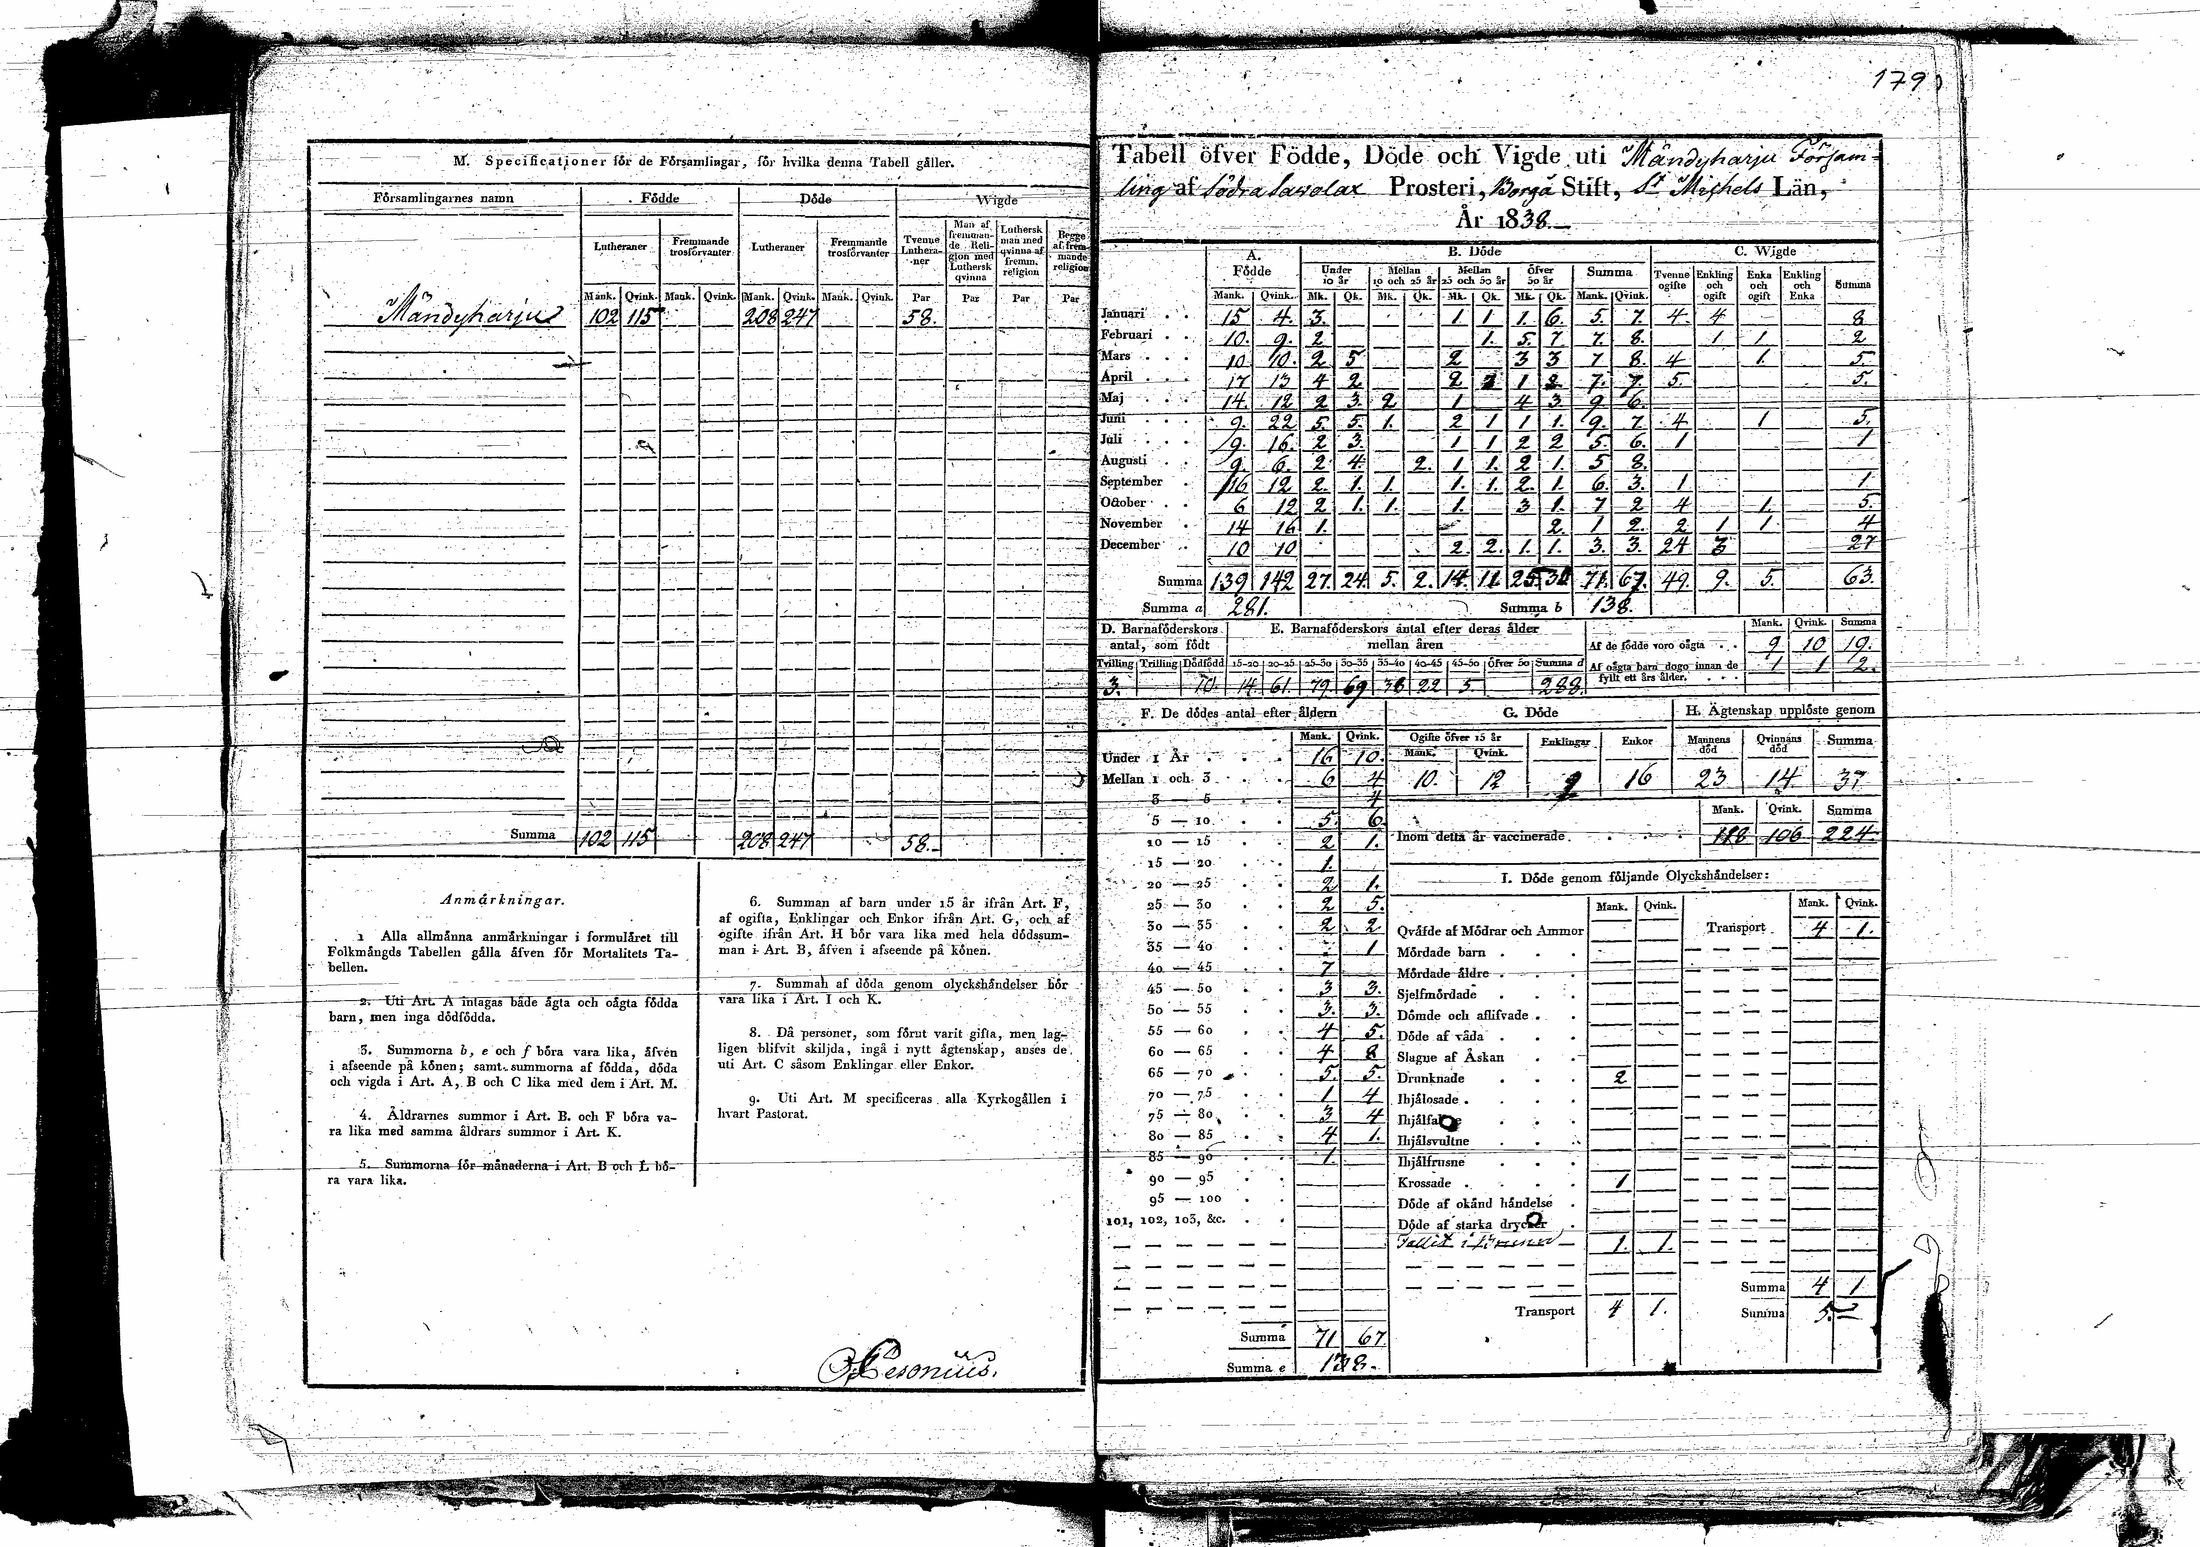 179
M. Specificationer för de Församlingar, för hvilka denna Tabell gäller.
Församlingarnes namn Födde Döde Wigde
Lutheraner Fremmande trosförvanter Lutheraner Fremmande trosförvanter Tvenne Lutheraner Man af fremmande Religion med Luthersk qvinna Luthersk man med qvinna af fremm. religion Begge af fremmande religion
Mank. Qvink. Mank. Qvink. Mank. Qvink. Mank. Qvink. Par Par Par Par
Mändyharju 102 115 208 247 58.
Summa 102 115 208 247 58.
Anmärkningar.
1 Alla allmänna anmärkningar i formuläret till
Folkmängds Tabellen gälla äfven för Mortalitets Ta-
bellen.
2. Uti Art. A intagas både ägta och oägta födda
barn, men inga dödfödda.
3. Summorna b, e och f böra vara lika, äfven
i afseende på könen; samt summorna af födda, döda
och vigda i Art. A, B och C lika med dem i Art. M.
4. Åldrarnes summor i Art. B. och F böra va-
ra lika med samma åldrars summor i Art. K.
5. Summorna för månaderna i Art. B och L bö-
ra vara lika.
6. Summan af barn under 15 år ifrån Art. F,
af ogifta, Enklingar och Enkor ifrån Art. G, och af
ogifte ifrån Art. H bör vara lika med hela dödssum-
man i Art. B, äfven i afseende på könen.
7. Summan af döda genom olyckshändelser bör
vara lika i Art. I och K.
8. Då personer, som förut varit gifta, men lag-
ligen blifvit skiljda, ingå i nytt ägtenskap, anses de
uti Art. C såsom Enklingar eller Enkor.
9. Uti Art. M specificeras alla Kyrkogällen i
hvart Pastorat.
Tabell öfver Födde, Döde och Vigde uti Mändyharju Försam-
ling af Södra Savolax Prosteri, Borgå Stift, St Michels Län,
År 1838.
A. Födde B. Döde C. Wigde
Under 10 år Mellan 10 och 25 år Mellan 25 och 50 år Öfver 50 år Summa Tvenne ogifte Enkling och ogift Enka och ogift Enkling och Enka Summa
Mank. Qvink. Mk. Qk. Mk. Qk. Mk. Qk. Mk. Qk. Mank. Qvink.
Januari 15 4. 3. 1. 1 1. 6. 5. 7. 4. 4 8
Februari 10. 9. 2 1. 5. 7 7 8. 1 1. 2
Mars 10 10. 2 5 2 3 3 7 8. 4 1. 5.
April 17 13 4 2 2 1 2 7. 7. 5. 5.
Maj 14. 12 2 3. 2 1 4 3 9 6.
Juni 9. 22 5. 5. 1. 2 1 1 1. 9. 7 4 1 5.
Juli 9. 16. 2 3. 1 1 2 2 5. 6. 1 1
Augusti 9. 6. 2 4. 2. 1 1. 2 1. 5 8.
September 16 12 2. 1. 1. 1. 1. 2. 1. 6. 3. 1 1.
October 6 12 2 1. 1. 1. 3 1. 7 2 4 1. 5.
November 14 16 1. 2. 1 2. 2 1 1 4
December 10 10 2. 2. 1. 1. 3. 3. 24 3 27
Summa 139 142 27. 24. 5. 2. 14. 11. 25. 30 71. 67. 49. 9. 5. 63.
Summa a 281. Summa b 138.
D. Barnaföderskors antal, som födt E. Barnaföderskors antal efter deras ålder mellan åren
Mank. Qvink. Summa
Af de födde voro oägta 9 10 19.
Af oägta barn dogo innan de fyllt ett års ålder. 1 1 2.
Tvilling Trilling Dödfödd 15-20 20-25 25-30 30-35 35-40 40-45 45-50 Öfver 50 Summa d
3. 10. 14. 61. 79. 69 38 22 5. 288.
F. De dödes antal efter åldern
Mank. Qvink.
Under 1 År 16 10.
Mellan 1 och 3 6 4
3 — 5 4
5 — 10 5. 6.
10 — 15 2 1.
15 — 20 1.
20 — 25 2 1.
25 — 30 2 5.
30 — 35 2 2
35 — 40 1
40 — 45 7
45 — 50 3 3.
50 — 55 3. 3.
55 — 60 4 5.
60 — 65 4 8
65 — 70 5. 5.
70 — 75 1 4
75 — 80 3 4
80 — 85 4 1.
85 — 90 1.
90 — 95
95 — 100
101, 102, 103, &c.
Summa 71 67.
Summa e 138.
G. Döde
Ogifte öfver 15 år Enklingar Enkor
Mank. Qvink.
10. 12 16
H. Ägtenskap upplöste genom
Mannens död Qvinnans död Summa
23 14. 37
Mank. Qvink. Summa
Inom detta år vaccinerade 118 106 224
I. Döde genom följande Olyckshändelser:
Mank. Qvink. Mank. Qvink.
Qväfde af Mödrar och Ammor Transport 4 1.
Mördade barn
Mördade äldre
Sjelfmördade
Dömde och aflifvade
Döde af våda
Slagne af Åskan
Drunknade 2
Ihjälosade
Ihjälsvultne
Ihjälfrusne
Krossade 1
Döde af okänd händelse
Döde af starka drycker
Fallit i brunn 1. 1.
Summa 4 1
Transport 4 1. Summa 5.